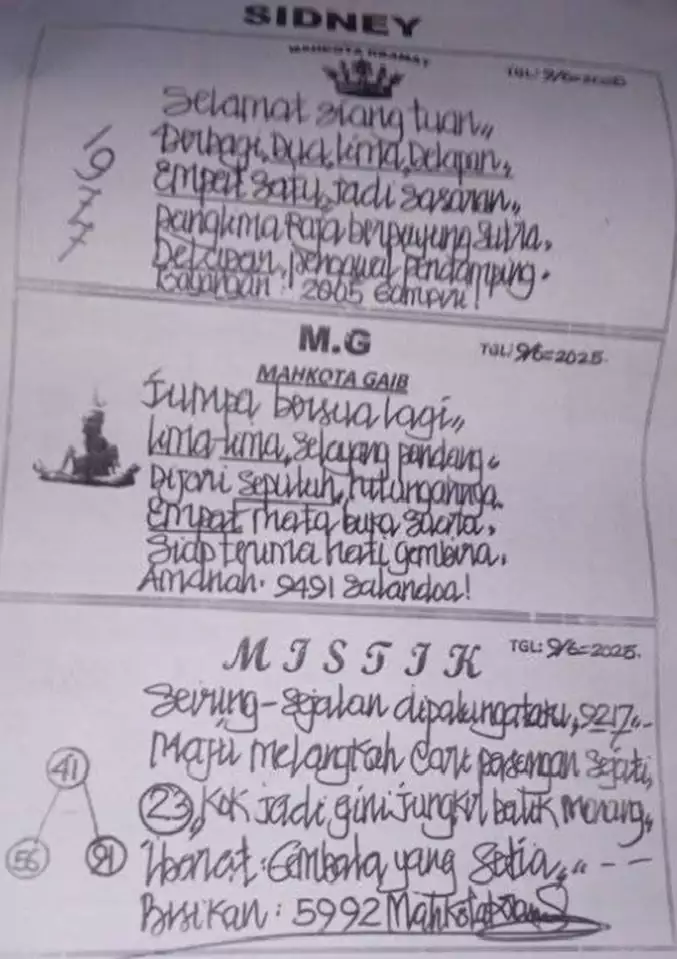 SIDNEY
MAHKOTA KRAMAT
TGL: 9/6=2025
Selamat siang tuan,,
Berbagi, Dua, Lima, Delapan,,
Empat satu, jadi sasaran,,
1977
panglima Raja berpayung sutra.
Delapan, pengawal pendamping.
Bayangan: 2005
M.G
TGL: 9/6=2025.
MAHKOTA GAIB
Jumpa bersua lagi,,
Lima-Lima, selayang pandang.
Dijari sepuluh, hitungannya.
Empat mata buka
Siap terima hati gembira.
Amanah. 9491 salandoa!
MISTIK
TGL: 9/6=2025.
Seirung-sejalan 9217,,--
Maju melangkah cari pasangan sejati,
41
23, Kok jadi gini jungkir balik menang,,
56 91
Ibarat: Gembala yang setia,,,, --
Bisikan: 5992 Mahkota